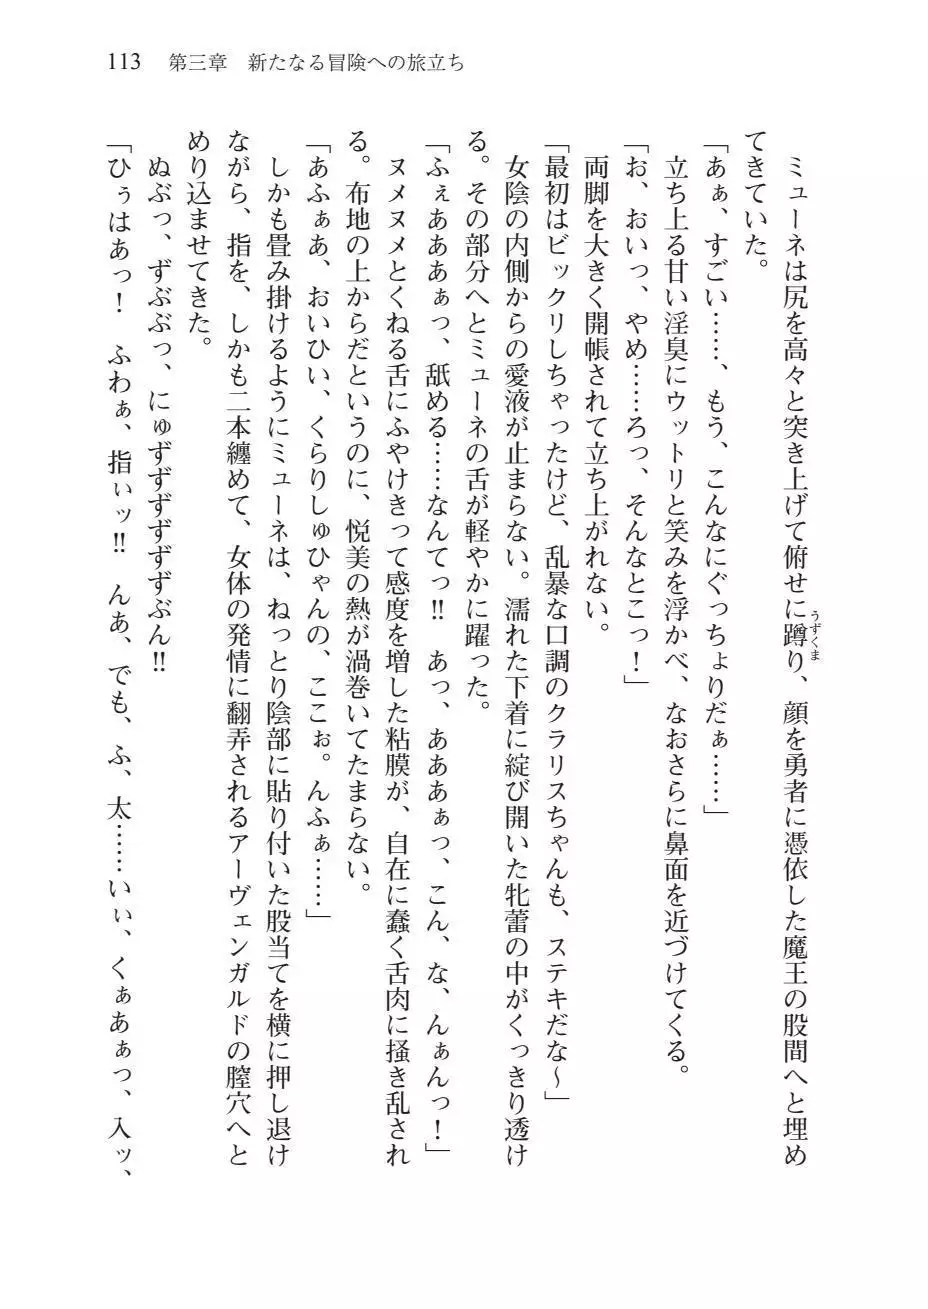 113　第三章　新たなる冒険への旅立ち
ミューネは尻を高々と突き上げて俯せに蹲り、顔を勇者に憑依した魔王の股間へと埋め
うずくま
てきていた。
「あぁ、すごい……、もう、こんなにぐっちょりだぁ……」
立ち上る甘い淫臭にウットリと笑みを浮かべ、なおさらに鼻面を近づけてくる。
「お、おいっ、やめ……ろっ、そんなとこっ！」
両脚を大きく開帳されて立ち上がれない。
「最初はビックリしちゃったけど、乱暴な口調のクラリスちゃんも、ステキだな～」
女陰の内側からの愛液が止まらない。濡れた下着に綻び開いた牝蕾の中がくっきり透け
る。その部分へとミューネの舌が軽やかに躍った。
「ふぇあああぁっ、舐める……なんてっ‼　あっ、あああぁっ、こん、な、んぁんっ！」
ヌメヌメとくねる舌にふやけきって感度を増した粘膜が、自在に蠢く舌肉に掻き乱され
る。布地の上からだというのに、悦美の熱が渦巻いてたまらない。
「あふぁあ、おいひい、くらりしゅひゃんの、ここぉ。んふぁ……」
しかも畳み掛けるようにミューネは、ねっとり陰部に貼り付いた股当てを横に押し退け
ながら、指を、しかも二本纏めて、女体の発情に翻弄されるアーヴェンガルドの膣穴へと
めり込ませてきた。
ぬぶっ、ずぶぶっ、にゅずずずずずぶん‼
「ひぅはあっ！　ふわぁ、指ぃッ‼　んあ、でも、ふ、太……いぃ、くぁあぁっ、入ッ、